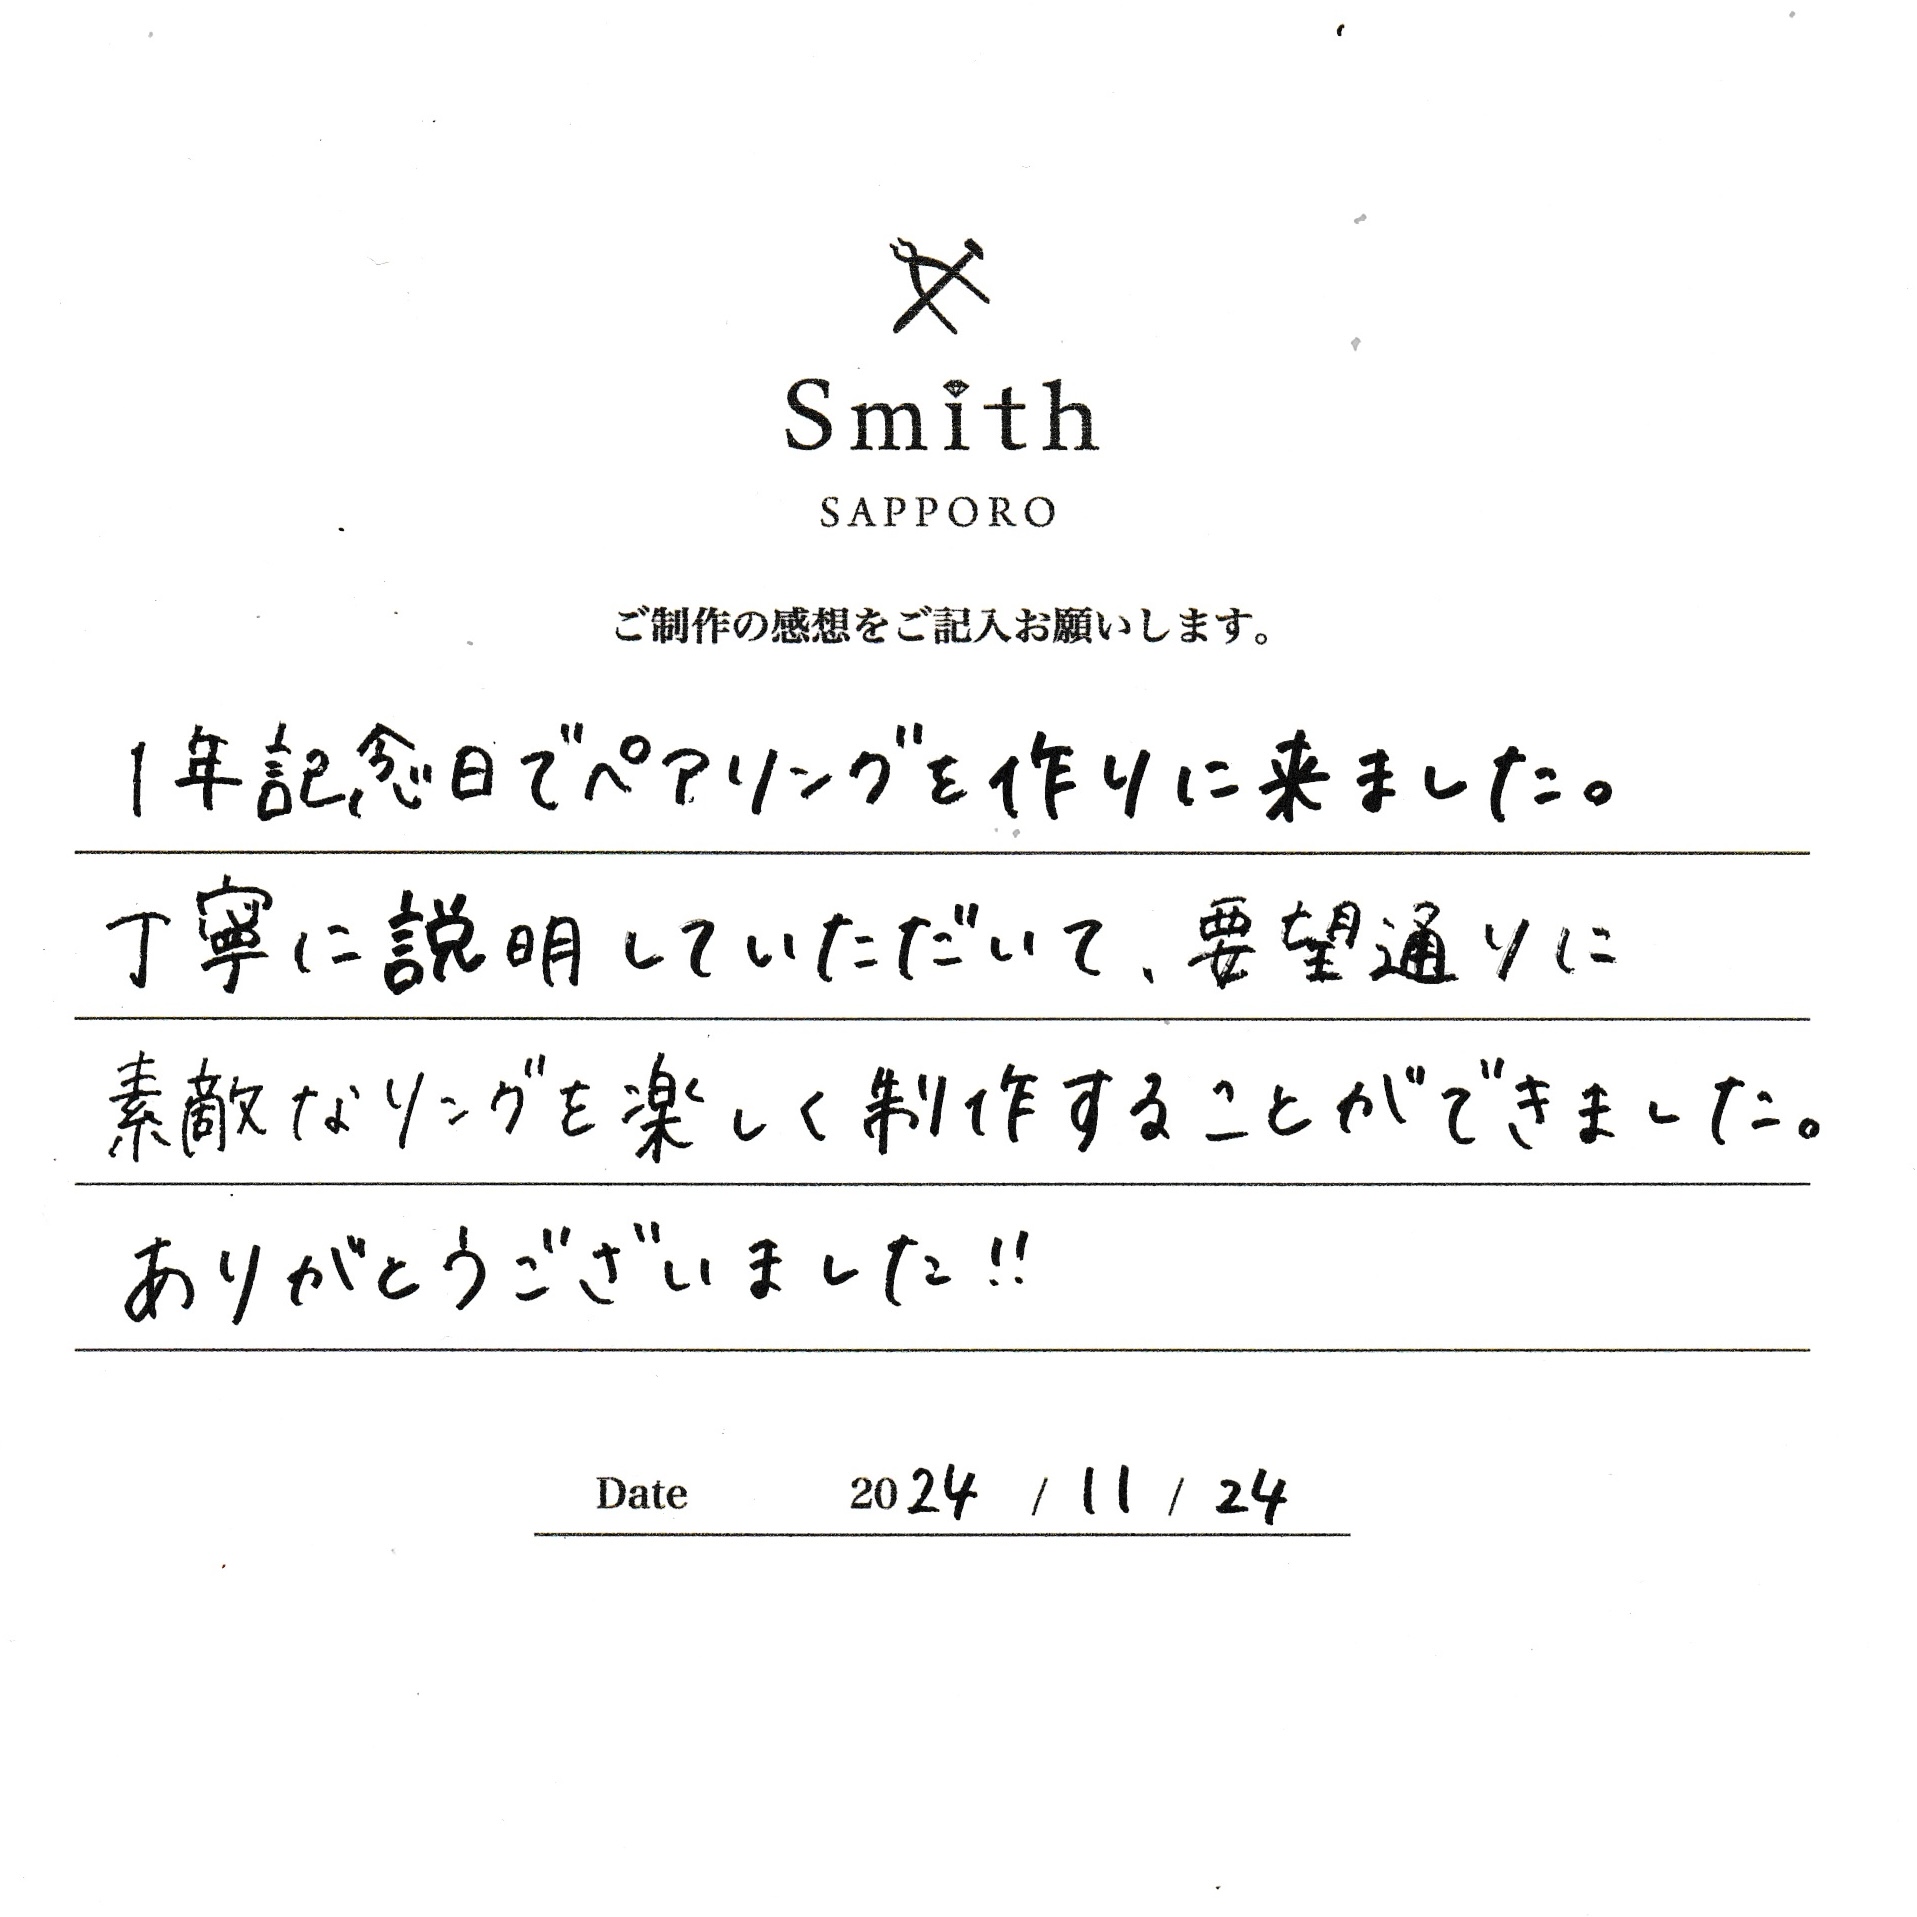 Smith
SAPPORO
ご制作の感想をご記入お願いします。
1年記念日でペアリングを作りに来ました。
丁寧に説明していただいて、要望通りに
素敵なリングを楽しく制作することができました。
ありがとうございました!!
Date 2024 / 11 / 24